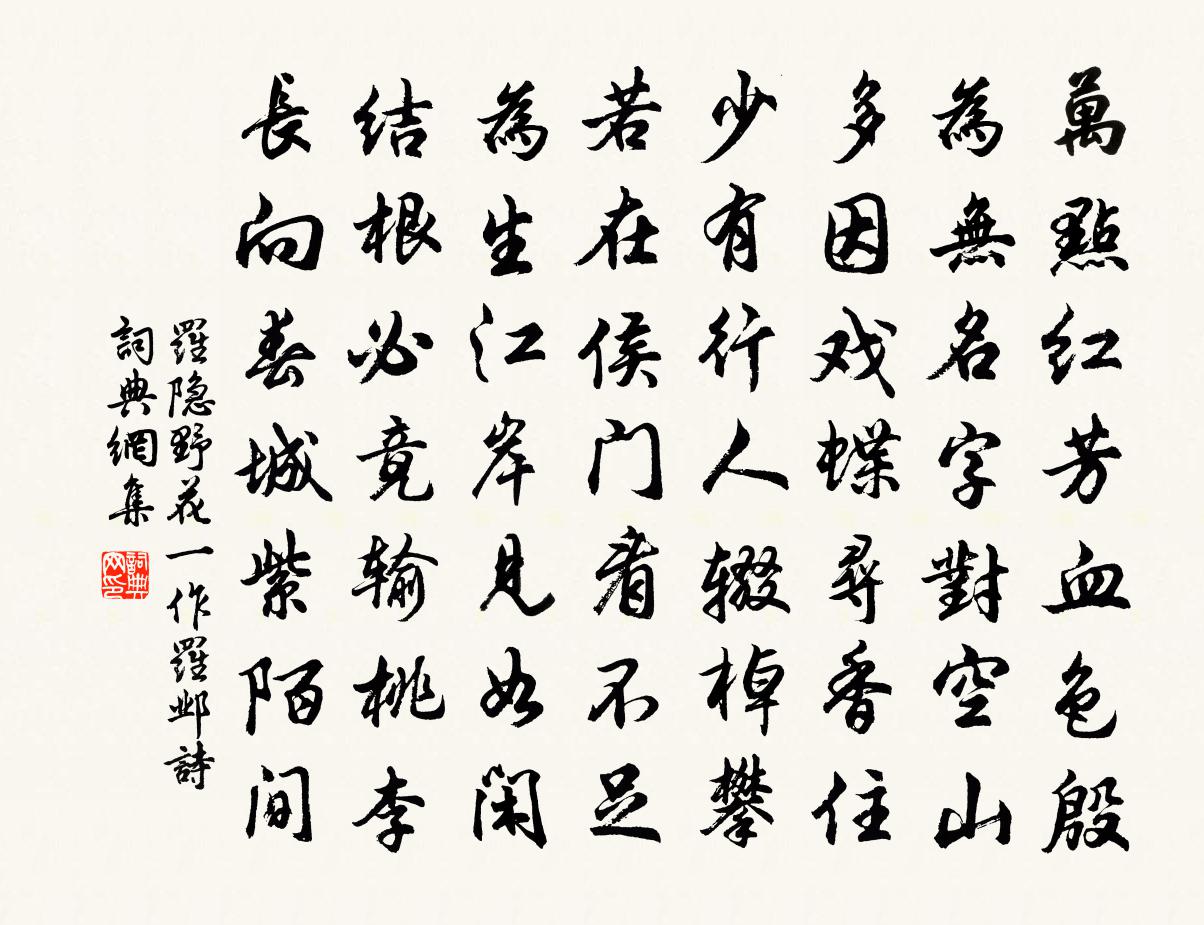 萬點红芳血色殷
為無名字對空山
多因戏蝶尋香住
少有行人辍棹攀
若在侯门看不足
為生江岸見如闲
结根必竟输桃李
長向春城紫陌间
羅隐野花一作羅邺詩
詞典網集
詞典网印